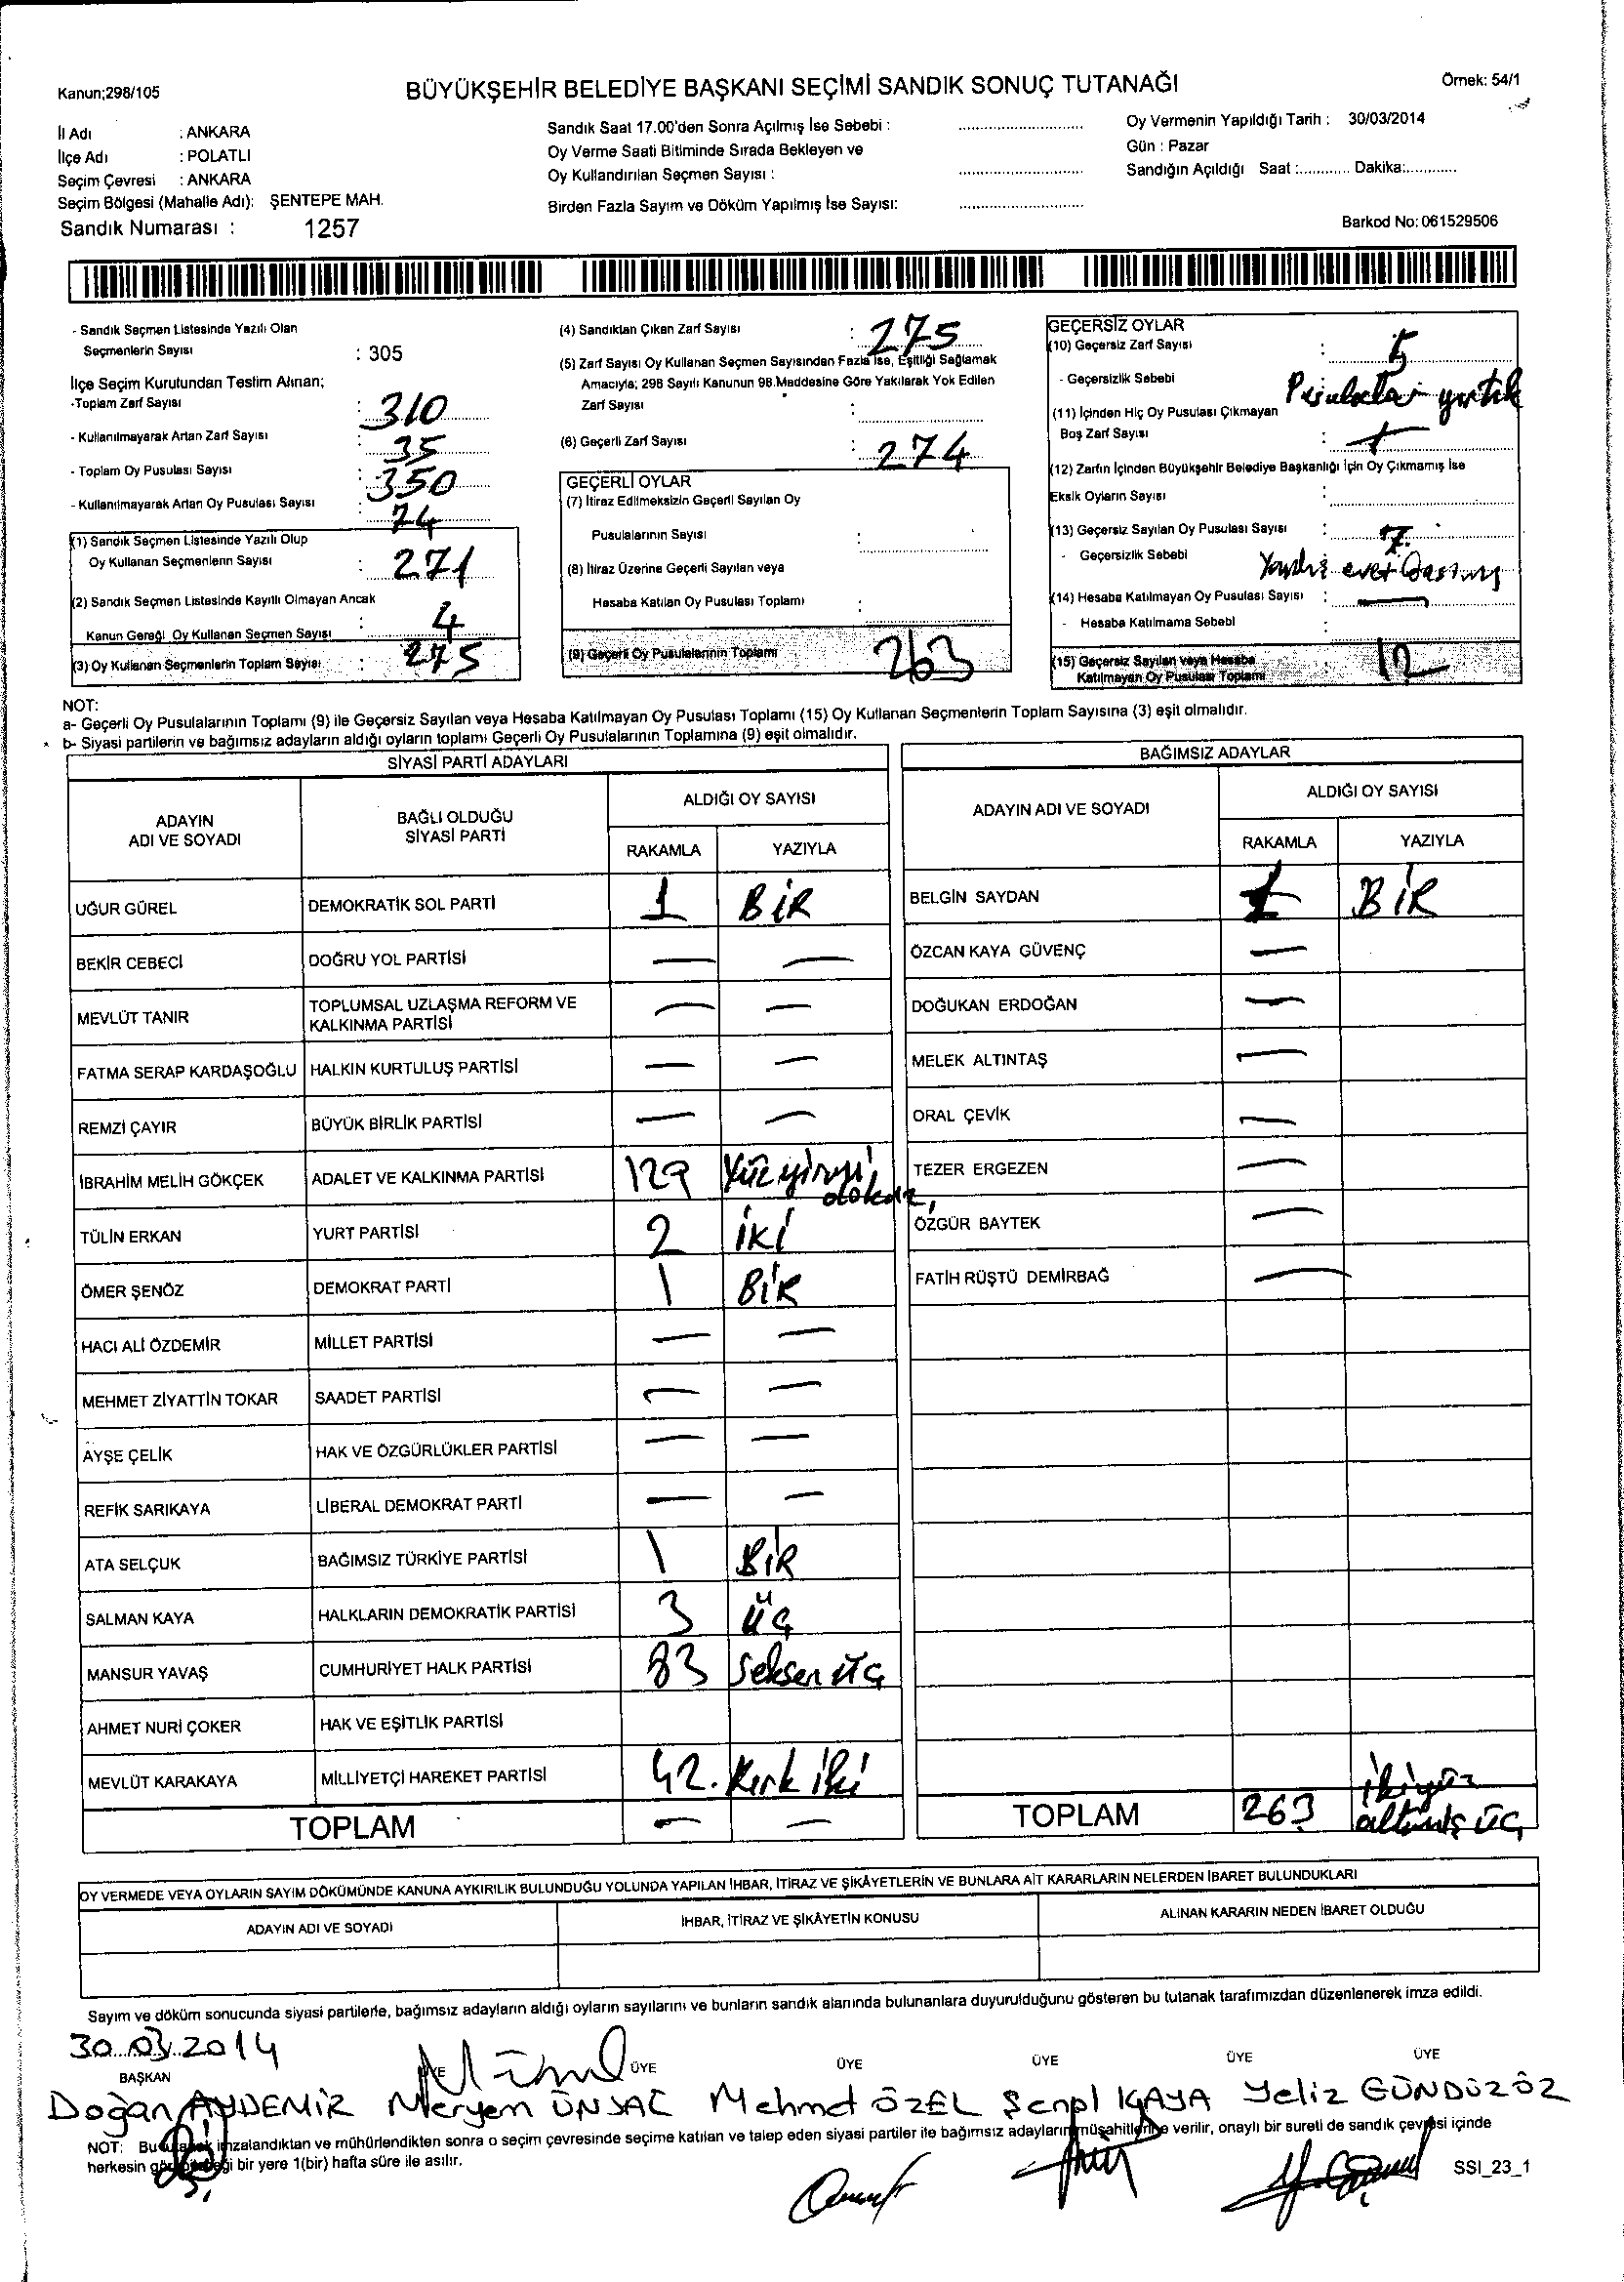 Kanun;298/105
BÜYÜKŞEHİR BELEDİYE BAŞKANI SEÇİMİ SANDIK SONUÇ TUTANAĞI
Örnek: 54/1
İl Adı : ANKARA
İlçe Adı : POLATLI
Seçim Çevresi : ANKARA
Seçim Bölgesi (Mahalle Adı): ŞENTEPE MAH.
Sandık Numarası : 1257
Sandık Saat 17.00'den Sonra Açılmış İse Sebebi :
Oy Verme Saati Bitiminde Sırada Bekleyen ve
Oy Kullandırılan Seçmen Sayısı :
Birden Fazla Sayım ve Döküm Yapılmış İse Sayısı:
Oy Vermenin Yapıldığı Tarih : 30/03/2014
Gün : Pazar
Sandığın Açıldığı Saat :............ Dakika:............
Barkod No: 061529506
- Sandık Seçmen Listesinde Yazılı Olan
Seçmenlerin Sayısı : 305
İlçe Seçim Kurulundan Teslim Alınan;
-Toplam Zarf Sayısı : 310
- Kullanılmayarak Artan Zarf Sayısı : 35
- Toplam Oy Pusulası Sayısı : 350
- Kullanılmayarak Artan Oy Pusulası Sayısı : 74
(1) Sandık Seçmen Listesinde Yazılı Olup
Oy Kullanan Seçmenlerin Sayısı : 271
(2) Sandık Seçmen Listesinde Kayıtlı Olmayan Ancak
Kanun Gereği Oy Kullanan Seçmen Sayısı : 4
(3) Oy Kullanan Seçmenlerin Toplam Sayısı : 275
(4) Sandıktan Çıkan Zarf Sayısı : 275
(5) Zarf Sayısı Oy Kullanan Seçmen Sayısından Fazla İse, Eşitliği Sağlamak
Amacıyla; 298 Sayılı Kanunun 98.Maddesine Göre Yakılarak Yok Edilen
Zarf Sayısı :
(6) Geçerli Zarf Sayısı : 274
GEÇERLİ OYLAR
(7) İtiraz Edilmeksizin Geçerli Sayılan Oy
Pusulalarının Sayısı :
(8) İtiraz Üzerine Geçerli Sayılan veya
Hesaba Katılan Oy Pusulası Toplamı :
(9) Geçerli Oy Pusulalarının Toplamı 263
GEÇERSİZ OYLAR
(10) Geçersiz Zarf Sayısı : 5
- Geçersizlik Sebebi yırtık
(11) İçinden Hiç Oy Pusulası Çıkmayan
Boş Zarf Sayısı :
(12) Zarfın İçinden Büyükşehir Belediye Başkanlığı İçin Oy Çıkmamış İse
Eksik Oyların Sayısı :
(13) Geçersiz Sayılan Oy Pusulası Sayısı : 7.
- Geçersizlik Sebebi
(14) Hesaba Katılmayan Oy Pusulası Sayısı : —
- Hesaba Katılmama Sebebi :
(15) Geçersiz Sayılan veya Hesaba
Katılmayan Oy Pusulası Toplamı 12
NOT:
a- Geçerli Oy Pusulalarının Toplamı (9) ile Geçersiz Sayılan veya Hesaba Katılmayan Oy Pusulası Toplamı (15) Oy Kullanan Seçmenlerin Toplam Sayısına (3) eşit olmalıdır.
b- Siyasi partilerin ve bağımsız adayların aldığı oyların toplamı Geçerli Oy Pusulalarının Toplamına (9) eşit olmalıdır.
SİYASİ PARTİ ADAYLARI
ADAYIN ADI VE SOYADI BAĞLI OLDUĞU SİYASİ PARTİ ALDIĞI OY SAYISI
RAKAMLA YAZIYLA
UĞUR GÜREL DEMOKRATİK SOL PARTİ 1 BİR
BEKİR CEBECİ DOĞRU YOL PARTİSİ — —
MEVLÜT TANIR TOPLUMSAL UZLAŞMA REFORM VE KALKINMA PARTİSİ — —
FATMA SERAP KARDAŞOĞLU HALKIN KURTULUŞ PARTİSİ — —
REMZİ ÇAYIR BÜYÜK BİRLİK PARTİSİ — —
İBRAHİM MELİH GÖKÇEK ADALET VE KALKINMA PARTİSİ 129 Yüz yirmi
TÜLİN ERKAN YURT PARTİSİ 2 İKİ
ÖMER ŞENÖZ DEMOKRAT PARTİ 1 BİR
HACI ALİ ÖZDEMİR MİLLET PARTİSİ — —
MEHMET ZİYATTİN TOKAR SAADET PARTİSİ — —
AYŞE ÇELİK HAK VE ÖZGÜRLÜKLER PARTİSİ — —
REFİK SARIKAYA LİBERAL DEMOKRAT PARTİ — —
ATA SELÇUK BAĞIMSIZ TÜRKİYE PARTİSİ 1 BİR
SALMAN KAYA HALKLARIN DEMOKRATİK PARTİSİ 3 ÜÇ
MANSUR YAVAŞ CUMHURİYET HALK PARTİSİ 83 Seksen üç
AHMET NURİ ÇOKER HAK VE EŞİTLİK PARTİSİ
MEVLÜT KARAKAYA MİLLİYETÇİ HAREKET PARTİSİ 42. Kırk iki
TOPLAM — —
BAĞIMSIZ ADAYLAR
ADAYIN ADI VE SOYADI ALDIĞI OY SAYISI
RAKAMLA YAZIYLA
BELGİN SAYDAN 1 BİR
ÖZCAN KAYA GÜVENÇ —
DOĞUKAN ERDOĞAN —
MELEK ALTINTAŞ —
ORAL ÇEVİK —
TEZER ERGEZEN —
ÖZGÜR BAYTEK —
FATİH RÜŞTÜ DEMİRBAĞ —
TOPLAM 263 ikiyüz altmış üç
OY VERMEDE VEYA OYLARIN SAYIM DÖKÜMÜNDE KANUNA AYKIRILIK BULUNDUĞU YOLUNDA YAPILAN İHBAR, İTİRAZ VE ŞİKÂYETLERİN VE BUNLARA AİT KARARLARIN NELERDEN İBARET BULUNDUKLARI
ADAYIN ADI VE SOYADI İHBAR, İTİRAZ VE ŞİKÂYETİN KONUSU ALINAN KARARIN NEDEN İBARET OLDUĞU
Sayım ve döküm sonucunda siyasi partilerle, bağımsız adayların aldığı oyların sayılarını ve bunların sandık alanında bulunanlara duyurulduğunu gösteren bu tutanak tarafımızdan düzenlenerek imza edildi.
30.03.2014
BAŞKAN ÜYE ÜYE ÜYE ÜYE ÜYE
Doğan AYDEMİR Meryem ÜNSAÇ Mehmet ÖZEL Şenol KAYA Yeliz GÜNDÜZÖZ
NOT: Bu tutanak imzalandıktan ve mühürlendikten sonra o seçim çevresinde seçime katılan ve talep eden siyasi partiler ile bağımsız adayların müşahitlerine verilir, onaylı bir sureti de sandık çevresi içinde
herkesin görebileceği bir yere 1(bir) hafta süre ile asılır.
SSI_23_1